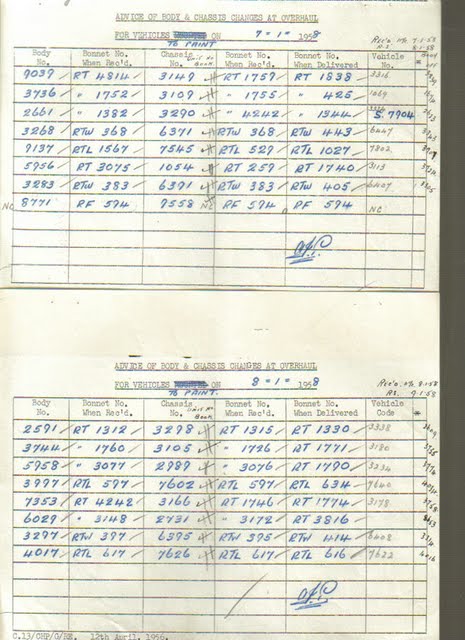 ADVICE OF BODY & CHASSIS CHANGES AT OVERHAUL
FOR VEHICLES ON 7 - 1 - 1958 Rec'd 7-1-58
TO PAINT 8-1-58
Body No. Bonnet No. When Rec'd. Chassis No. Unit No Book Bonnet No. When Rec'd. Bonnet No. When Delivered Vehicle No.
7039 RT 4814 3149 RT 1757 RT 1838 3316
3736 " 1752 3109 " 1755 " 425 1069
2661 " 1382 3290 " 4242 " 1344 S.7904
3268 RTW 368 6371 RTW 368 RTW 443 6447
9137 RTL 1567 7545 RTL 529 RTL 1027 7802
5956 RT 3075 1054 RT 259 RT 1740 3113
3283 RTW 383 6391 RTW 383 RTW 405 6407
NC 8771 RF 594 9558 NC RF 594 RF 594 NC
ADVICE OF BODY & CHASSIS CHANGES AT OVERHAUL
FOR VEHICLES ON 8 - 1 - 1958 Rec'd 8-1-58
TO PAINT. 9-1-58
Body No. Bonnet No. When Rec'd. Chassis No. Unit No Book Bonnet No. When Rec'd. Bonnet No. When Delivered Vehicle Code
2591 RT 1312 3298 RT 1315 RT 1390 3338
3744 " 1760 3105 " 1726 RT 1771 3180
5958 " 3077 2989 " 3076 RT 1790 3234
3997 RTL 597 7602 RTL 597 RTL 634 7640
7353 RT 4242 3166 RT 1746 RT 1774 3178
6029 " 3148 2731 " 3172 RT 3816
3297 RTW 397 6395 RTW 395 RTW 414 6408
4017 RTL 617 7626 RTL 617 RTL 616 7622 4016
C.13/CHP/G/RE. 12th April. 1956.